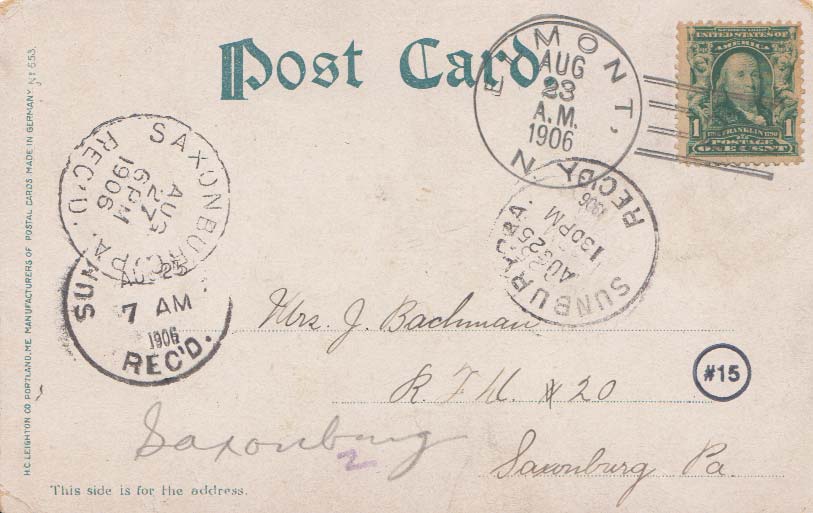 Post Card.
ELIMONT, N
AUG
23
A.M.
1906
UNITED STATES OF
AMERICA
1 FRANKLIN 1
POSTAGE
ONE CENT
SAXONBURG PA.
AUG
27
6 PM
1906
REC'D.
SUNBURY PA.
AUG 25
130PM
1906
REC'D
SUN
25
7 AM
1906
REC'D.
Mrs. J. Bachman
R. F. D. # 20
#15
Saxonburg
2
Saxonburg Pa.
This side is for the address.
H.C. LEIGHTON CO PORTLAND, ME. MANUFACTURERS OF POSTAL CARDS. MADE IN GERMANY. Nr 553.